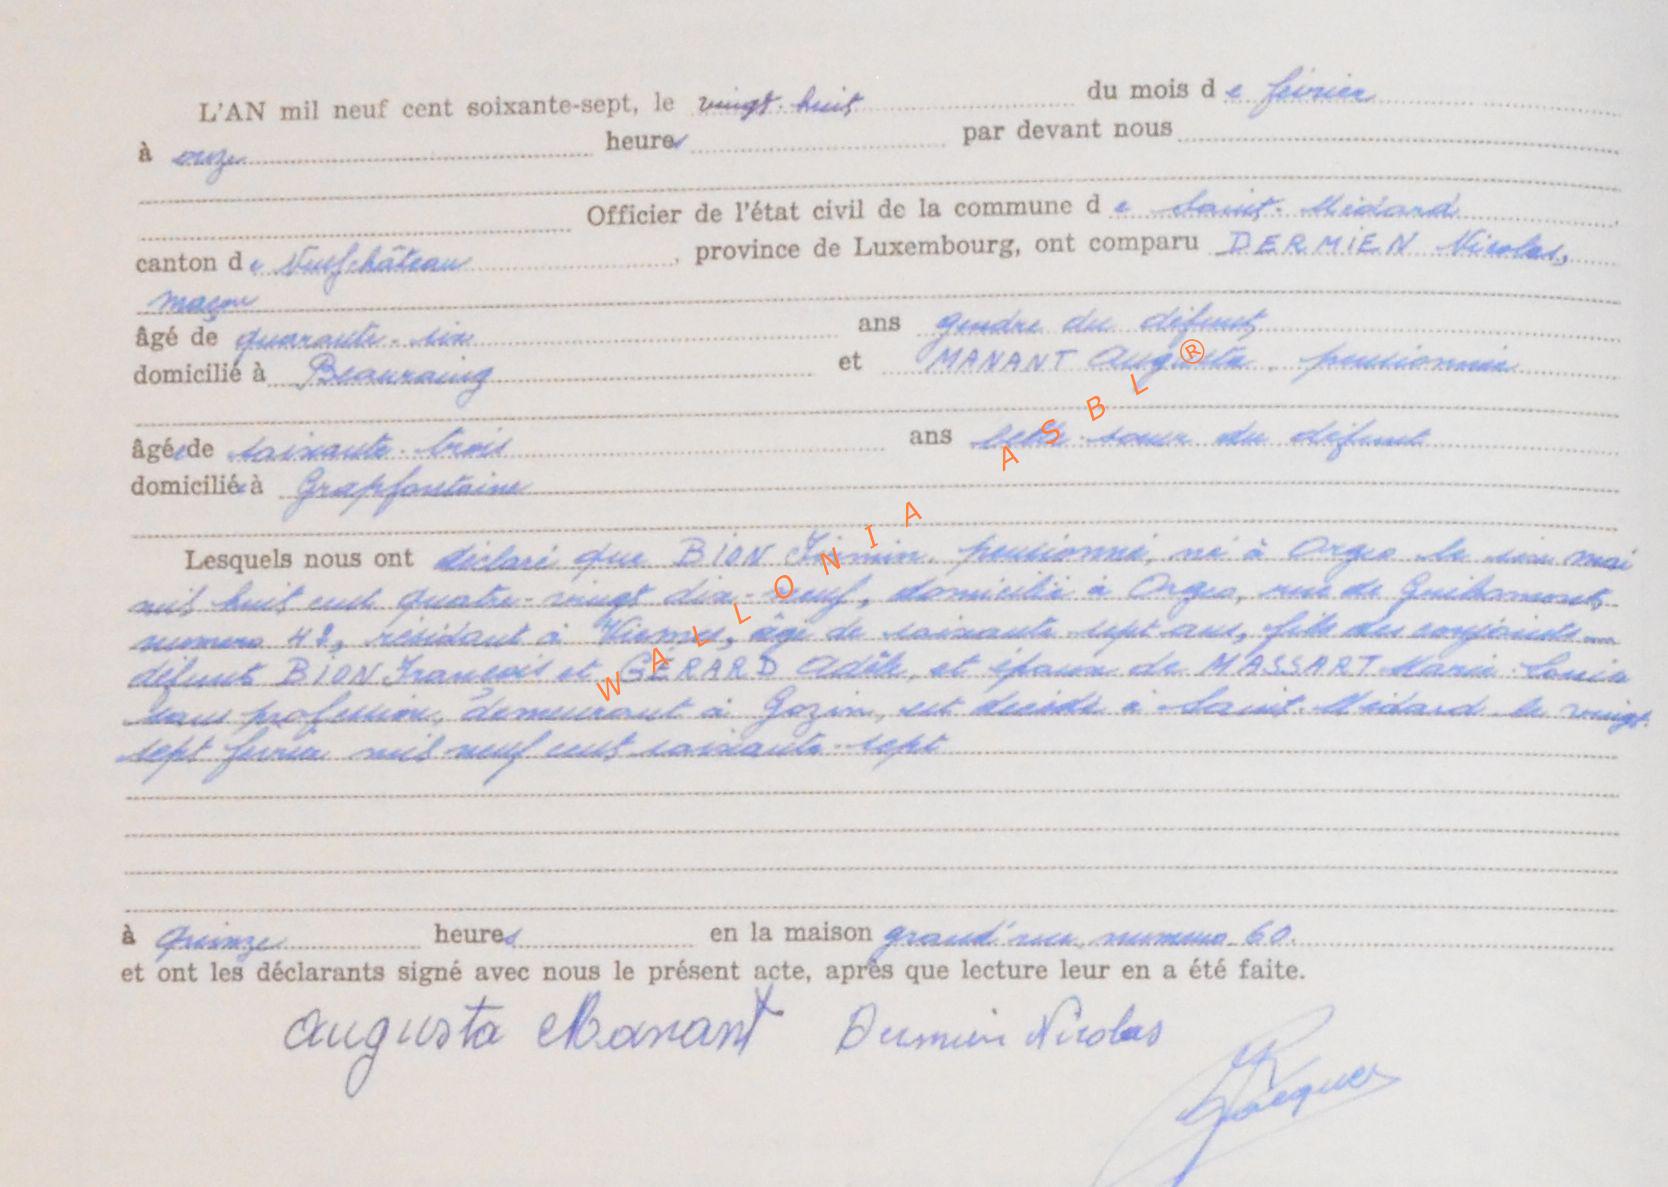 L'AN mil neuf cent soixante-sept, le vingt-huit du mois de février
à onze heures par devant nous
Officier de l'état civil de la commune de Saint-Médard
canton de Neufchâteau, province de Luxembourg, ont comparu DERMIEN Nicolas,
maçon
âgé de quarante-six ans gendre du défunt,
domicilié à Beauraing et MANANT Augusta, pensionnée
âgée de soixante-trois ans belle-soeur du défunt
domiciliée à Grapfontaine
Lesquels nous ont déclaré que BION Firmin, pensionné, né à Orgeo le six mai
mil huit cent quatre-vingt dix-neuf, domicilié à Orgeo, rue de
numéro 48, résidant à âgé de soixante sept ans, fils des conjoints
défunts BION François et GERARD Adèle, et époux de MASSART Marie-Louise
sans profession, demeurant à Gozin, est décédé à Saint-Médard le vingt-
sept février mil neuf cent soixante-sept
à quinze heures en la maison grand'rue, numéro 60.
et ont les déclarants signé avec nous le présent acte, après que lecture leur en a été faite.
Augusta Manant Dermien Nicolas
Jacques
WALLONIA ASBL®